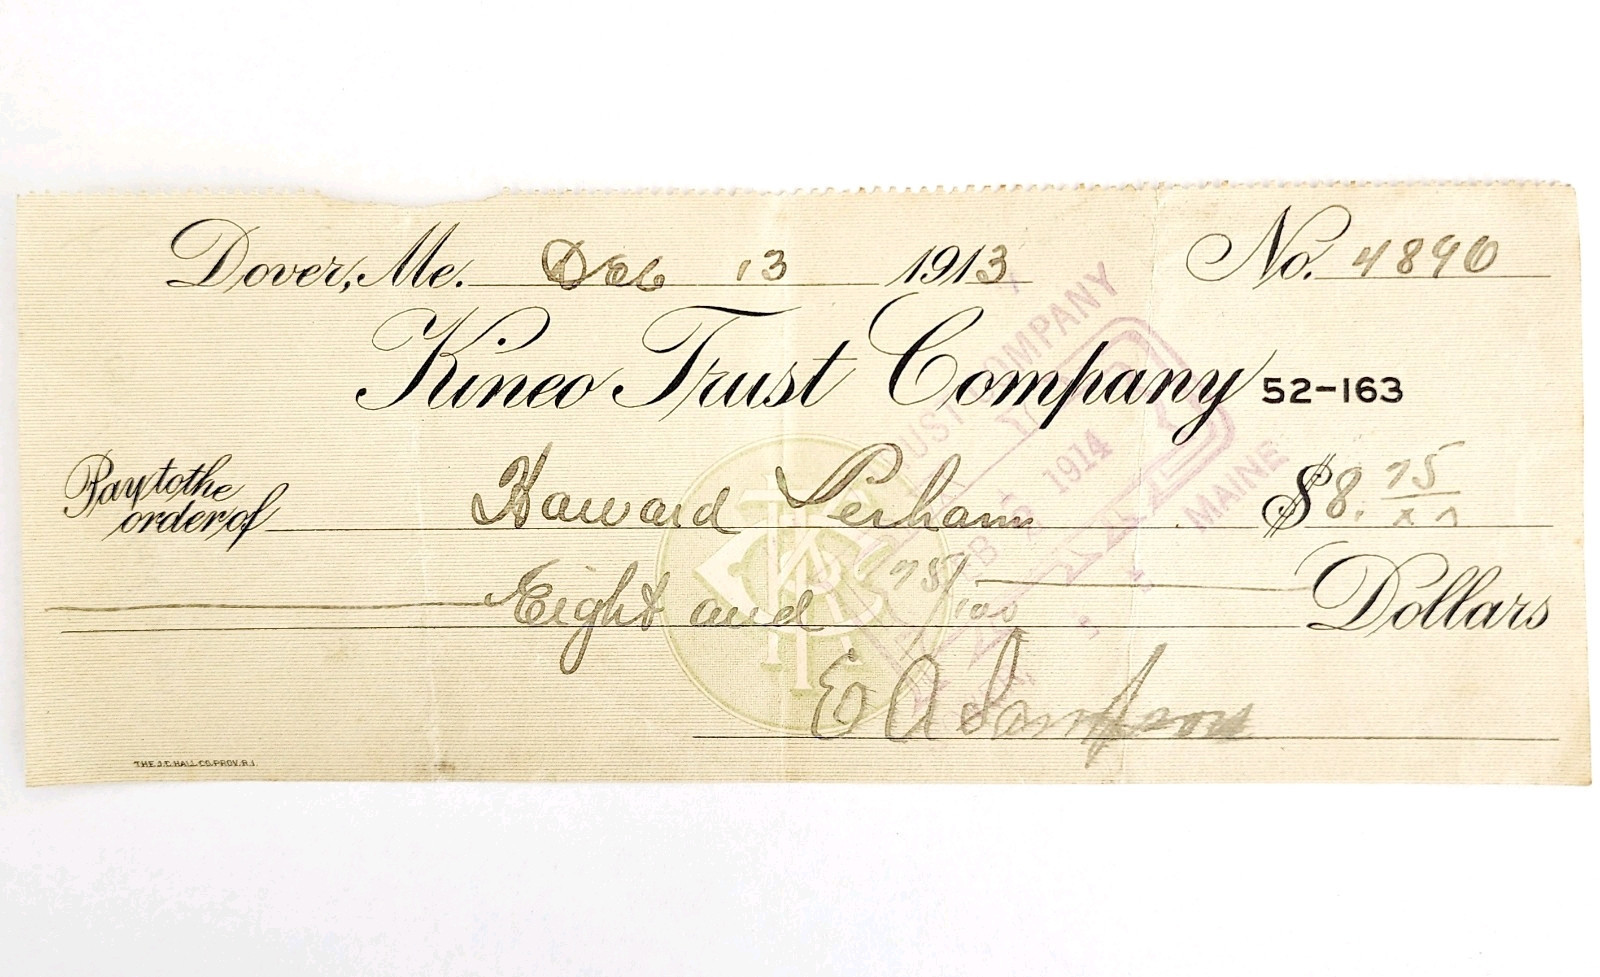 Dover, Me. Dec 13 1913 No. 4890
Kineo Trust Company 52-163
Pay to the order of Howard Perham $8. 75/xx
Eight and 75/100 Dollars
E A Sampson
THE J.C. HALL CO. PROV. R.I.
TRUST COMPANY
PAID
FEB 2 1914
MAINE
KTC